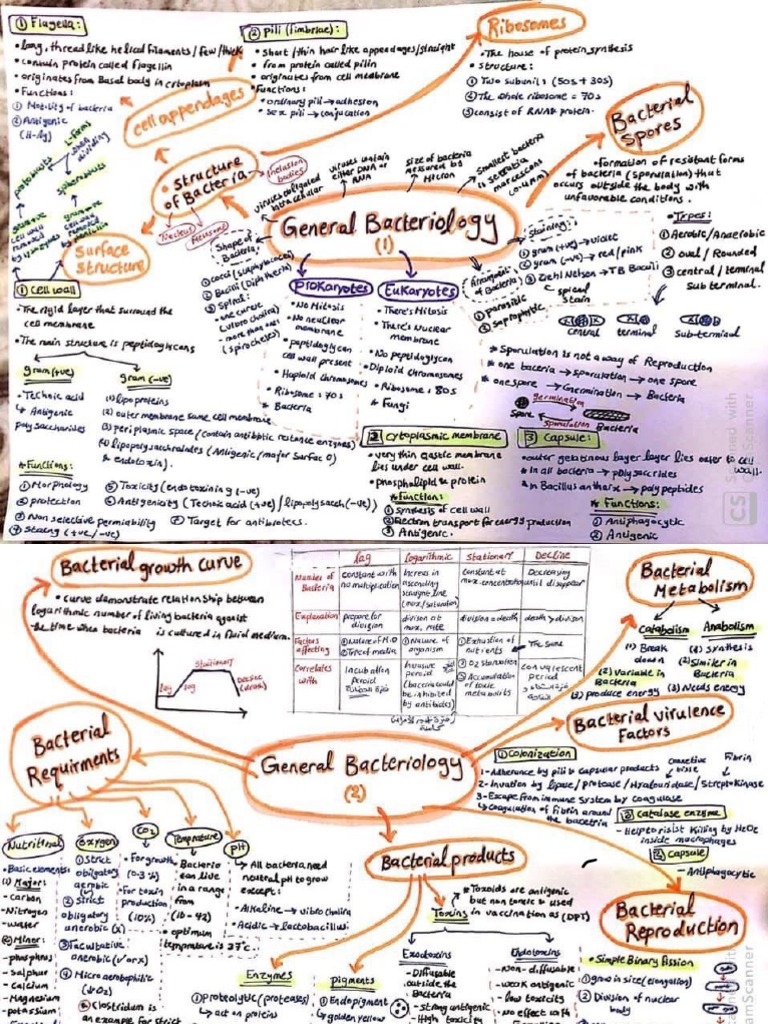 ① Flagella:
• long, thread like helical filaments / few / thick
• contain protein called flagellin
• originates from Basal body in cytoplasm
• Functions:
① Motility of bacteria
② Antigenic
(H-Ag)
② pili (fimbriae):
• Short / thin hair like appendages / straight
• from protein called pilin
• originates from cell membrane
• Functions:
• ordinary pili → adhesion
• sex pili → conjucation
Ribosomes
• The house of protein synthesis
• Structure:
① Two subunits (50s + 30s)
② The whole ribosome = 70s
③ consist of RNA & protein.
cell appendages
• structure of Bacteria
Inclusion bodies
Nucleus
Surface structure
protoplasts
L-forms
when dividing
spheroplasts
viruses obligated intracellular
viruses contain either DNA or RNA
size of bacteria mesured by Micron
Smallest bacteria is serratia marcescens
General Bacteriology
(1)
Bacterial Spores
• formation of resistant forms
of bacteria (sporulation) that
occurs outside the body with
unfavorable conditions.
• Types:
① Aerobic/Anaerobic
② oval / Rounded
③ central / terminal
sub terminal.
central terminal Sub-terminal
* Sporulation is not a way of Reproduction
* one bacteria → sporulation → one spore
* one spore → Germination → Bacteria
germination
Spore Bacteria
sporulation
Shape of Bacteria:
① cocci (staphylococcus)
② Bacilli (Diphtheria)
③ Spiral:
- one curve
(vibro cholira)
- more than one
(spirochetes)
Prokaryotes
• No Mitosis
• No nuclear membrane
• peptidoglycan
cell wall present
• Haploid chromosomes
• Ribosome: 70s
* Bacteria
Eukaryotes
• There's Mitosis
• There's Nuclear membrane
• No peptidoglycan
• Diploid chromosomes
• Ribosome: 80s
* Fungi
① parasitic
② saprophytic
Staining:
① gram (+ve) → violet
② gram (-ve) → red / pink
③ Ziehl Nelson → TB Bacilli
special Stain
① cell wall
• The rigid layer that surround the
cell membrane
• The main structure is peptidoglycans
gram (+ve)
• Techoic acid
↳ Antigenic
poly saccharides
gram (-ve)
(1) lipoproteins
(2) outer membrane same cell membrane
(3) periplasmic space (contain antibiotic restance enzymes)
(4) lipopolysaccharaides (Antigenic / major surface O)
& endotoxin).
* Functions:
① Morphology
② protection
③ Non selective permiability
④ Staing (+ve/-ve)
⑤ Toxicity (endotoxin in g (-ve)
⑥ Antigenicity (Techoic acid (+ve) / lipopolysacch (-ve))
⑦ Target for antibiotecs.
2 cytoplasmic membrane
• very thin elastic membrane
lies under cell wall.
• phospholipid & protein
* Function:
① synthesis of cell wall
② Electron transport for energy production
③ Antigenic.
3 Capsule:
• outer gelatinous layer layer lies outer to cell wall.
* In all bacteria → polysaccrides
* In Bacillus anthrax → poly peptides
* Functions:
① Antiphagocytic
② Antigenic
CS Scanned with CamScanner
Bacterial growth curve
• Curve demonstrate relationship between
logarithmic number of living bacteria against
the time when bacteria is cultured in fluid medium.
lag
log
Stationary
Decline (death)
lag Logarithmic Stationary Decline
Number of Bacteria
constant with no multiplication
Increase in ascending straight line
constant at max. concentration
Decreasing until disappear
Explanation
prepare for division
divison at max. rate
division = death
death > divison
Factors affecting
① Nature of M.O
② Type of media
① Nature of organism
① Exhaustion of nutrients
② O2 starvation
③ Accumulation of toxic metabolits
The same
Correlates with
Incubation peroid
Invasive peroid
(bacteria could be inhibited by antibiotics)
convalescent period
Bacterial Metabolism
Catabolism
(1) Break down
(2) Variable in Bacteria
(3) produce energy
Anabolism
(1) synthesis
(2) Similer in Bacteria
(3) Needs energy
Bacterial virulence Factors
① Colonization
1- Adherence by pili & capsular products
2- Invation by lipase / protease / Hyalouridase / Streptokinase
Fibrin
3- Escape from immune system by coagulase
↳ coagulation of fibrin around the bacteria
② catalase enzyme
- Help to risist Killing by H2O2
inside macrophages
③ capsule
- Antiphagocytic
Bacterial Requirments
General Bacteriology
(2)
Nutritional
• Basic elements:
(1) Major:
- carbon
- Nitrogen
- water
(2) Miner:
- phosphros
- Sulphur
- Calcium
- Magnesium
- potassium
Oxygen
① Strict obligatory aerobic (✓)
② strict obligatory anerobic (x)
③ Facultative anerobic (✓ or x)
④ Microaerobphilic (↓O2)
Clostridium is
an example for strict
CO2
• For growth
(0.3 %)
• for toxin production
(10%)
Temperature
Bacteria can live in a range from
(10 - 42)
• optimum temperature is 37c.
pH
→ All bacteria need
neutral pH to grow
except:
• Alkaline → vibro Cholira
• Acidic → lactobacillus.
Bacterial products
Enzymes
① proteolytic (proteases)
↳ act on proteins
pigments
① Endopigment
↳ golden yellow
Toxins
* Toxoids are antigenic
but non toxic & used
in vaccination as (DPT)
Exotoxins
- Diffusable
outside the
Bacteria
- strong antigenic
- High toxicity
Endotoxins
- Non-diffusable
- weak antigonic
- low toxicity
- no effect with
Bacterial Reproduction
• Simple Binary fission
① grow in size (elongation)
② Division of nuclear body
CamScanner